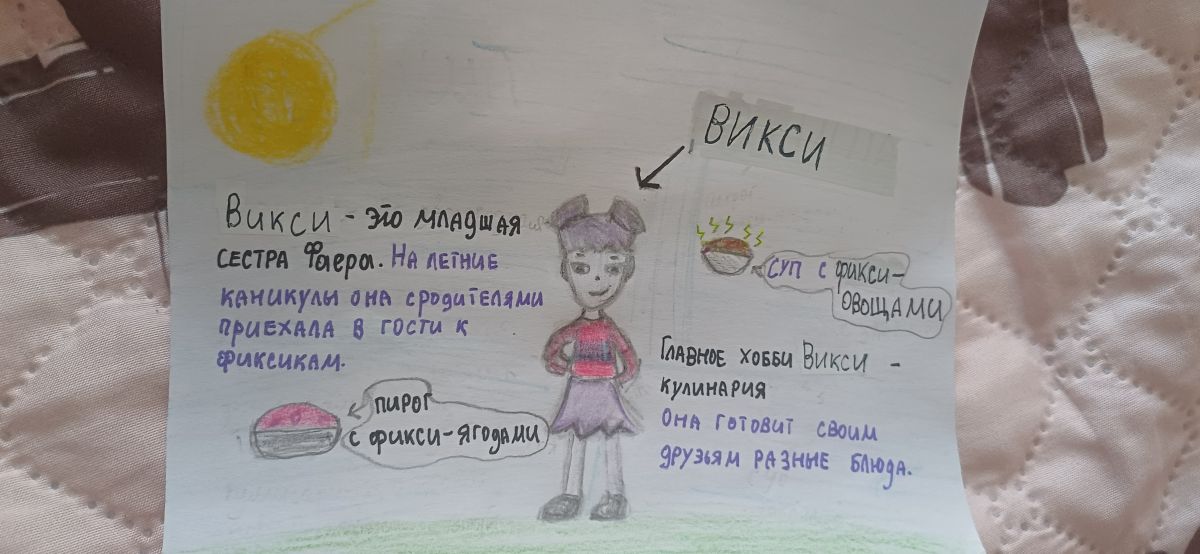 ВИКСИ
Викси - это младшая
сестра Фаера. На летние
каникулы она сродителями
приехала в гости к
фиксикам.
суп с фикси-
овощами
Главное хобби Викси -
кулинария
Она готовит своим
друзьям разные блюда.
пирог
с фикси-ягодами